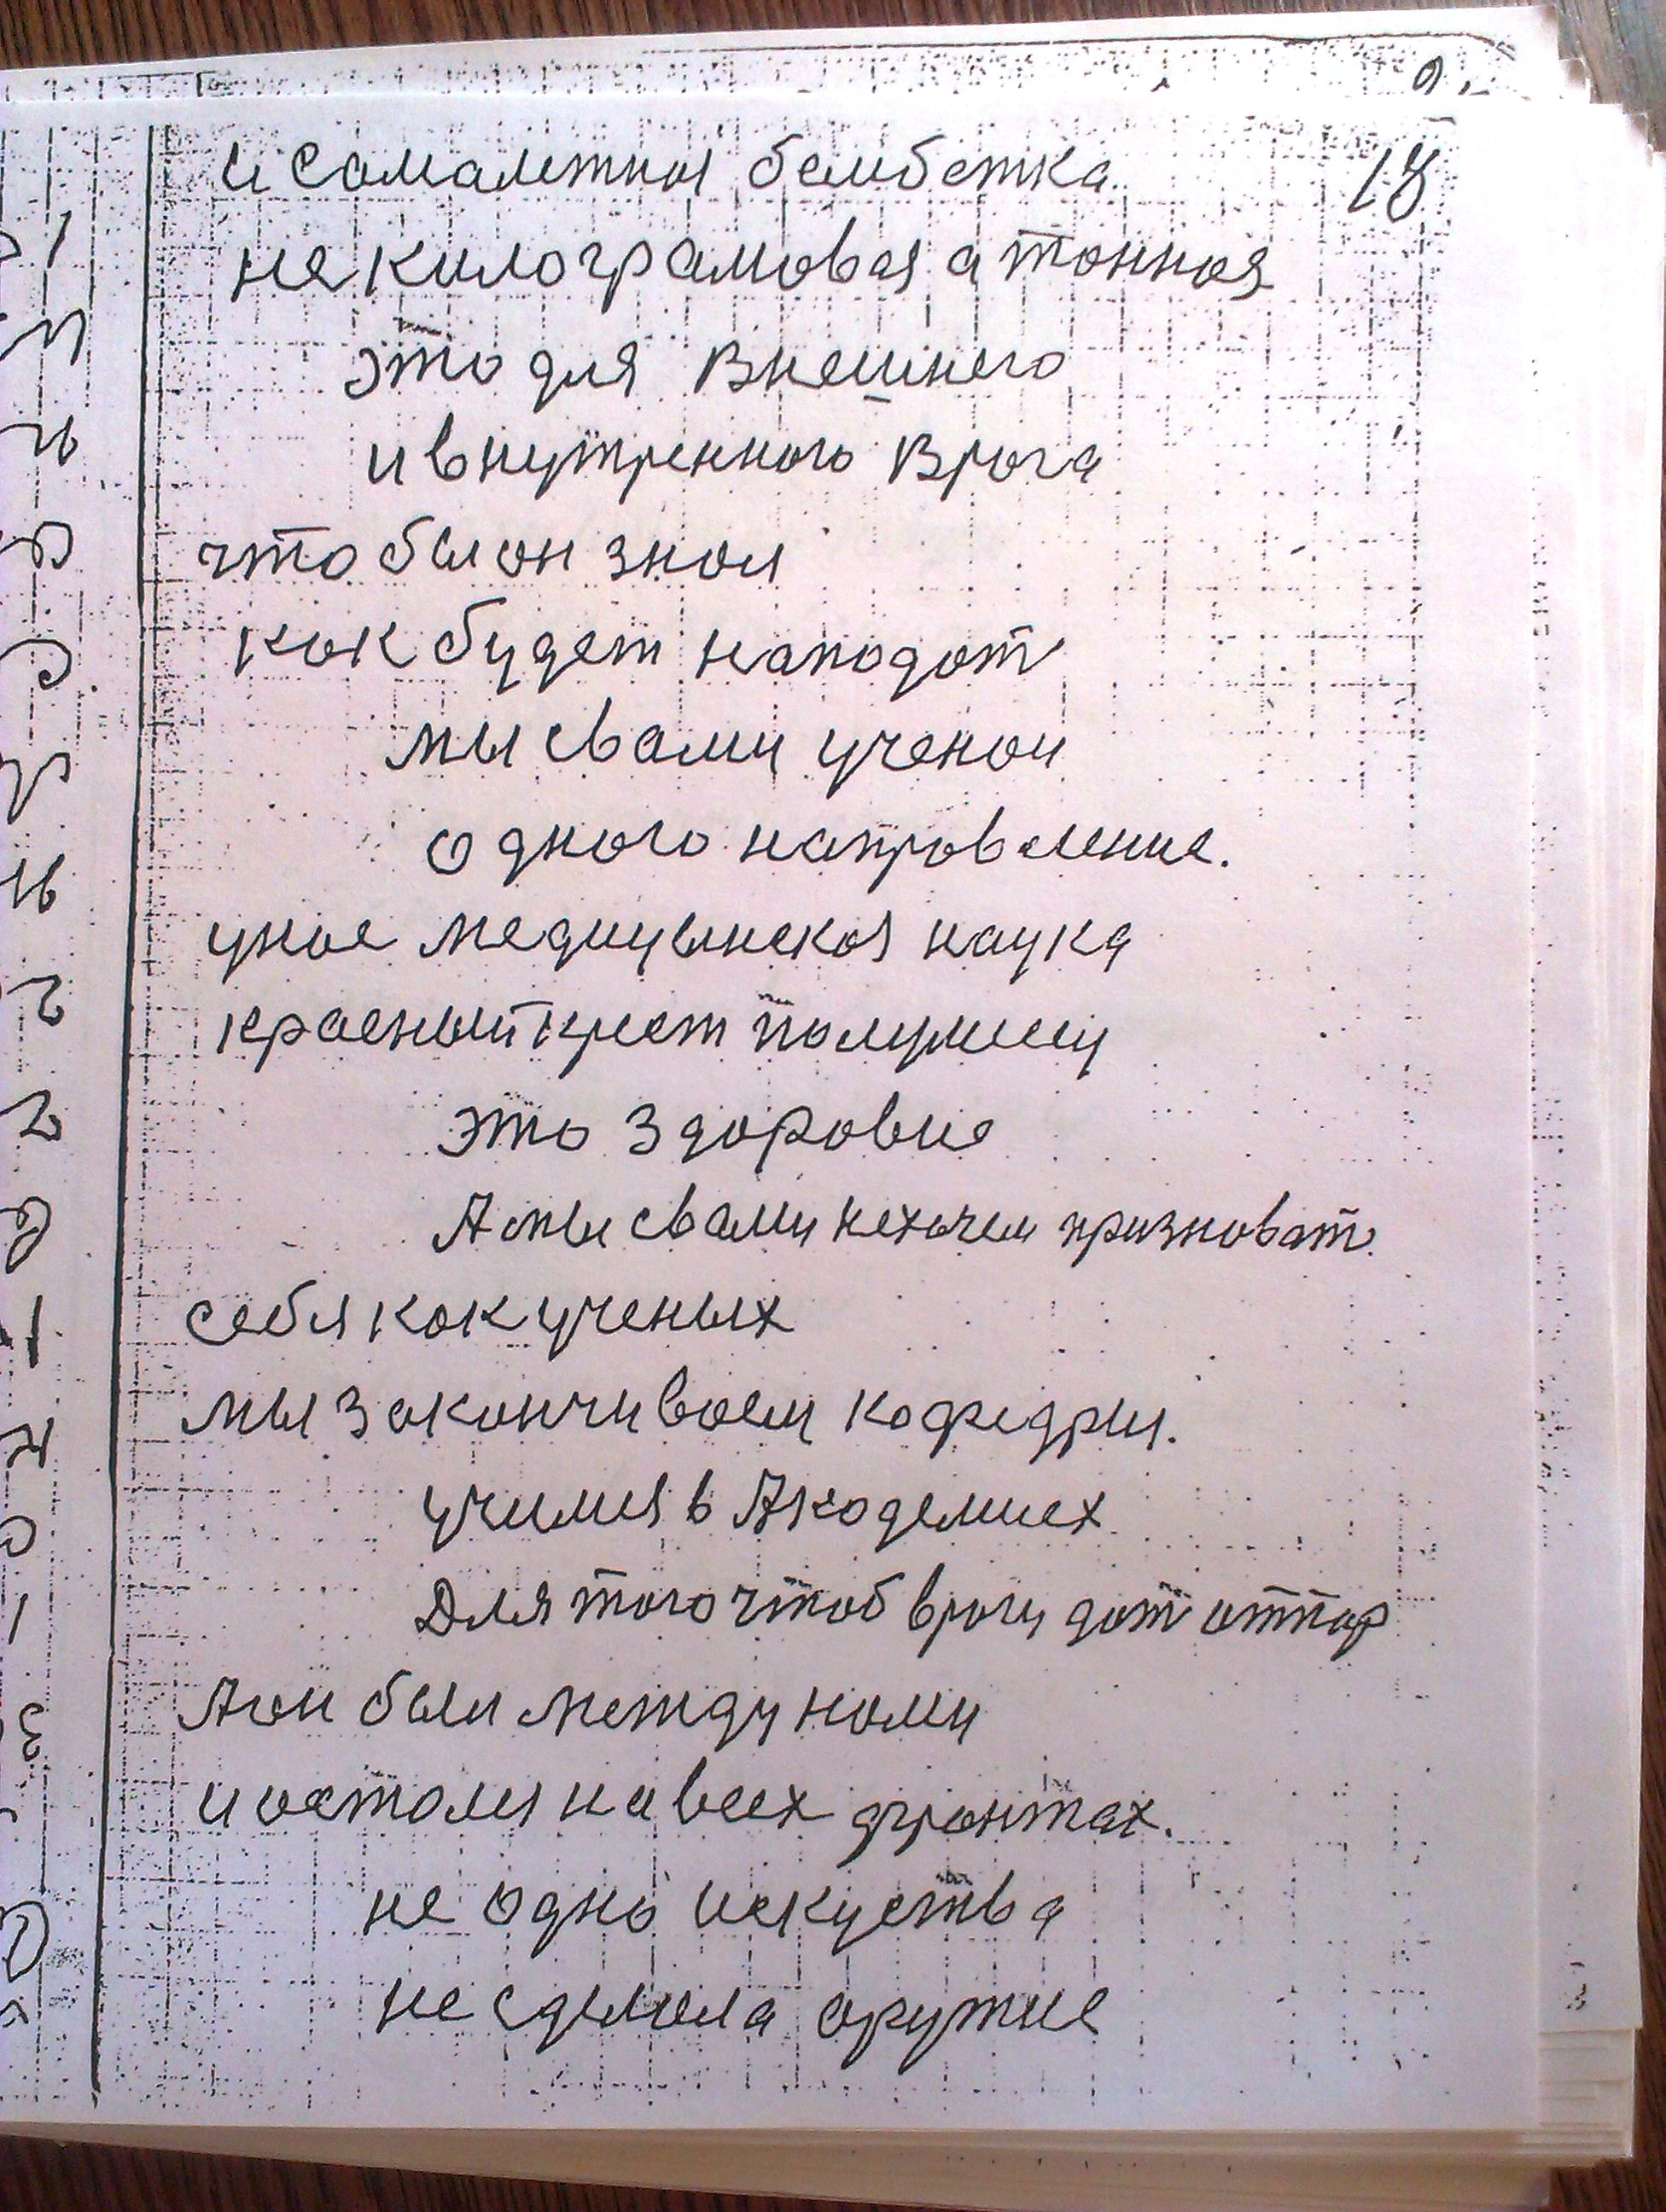 18
и сомалетная бомбетка
не килограмовая а тонная
это для внешнего
и внутренного врага
что бы он знал
как будет нападат
мы с вами ученои
одного направление.
уное медицынская наука
красный крест полумесц
это здоровие
А мы с вами не хочем призноват
себя как ученых
мы закончиваем кафедры.
учимся в Академиех
Для того чтоб врагу дат отпор
А он был между нами
и остался на всех фронтах.
не одно искуства
не сделала оружие